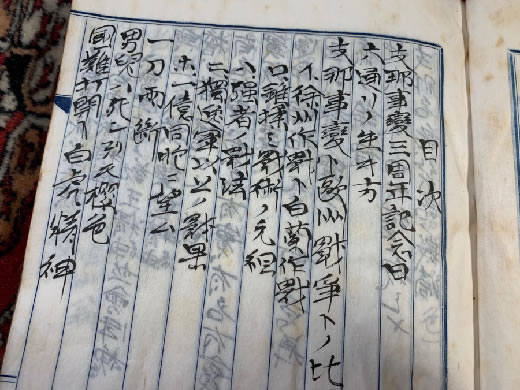 目次
支那事變三周年記念日
六通リノ生キ方
支那事變ト歐州戰爭トノ比
イ、徐州作戰ト白蘭作戰
ロ、雜採ミ戰術ノ元祖
ハ、強者ノ戰法
ニ、獨逸軍以上ノ戰果
ホ、一億同胞ニ望ム
一刀兩斷
男兒ハ死シテモ櫻色
國難打開ト白虎精神